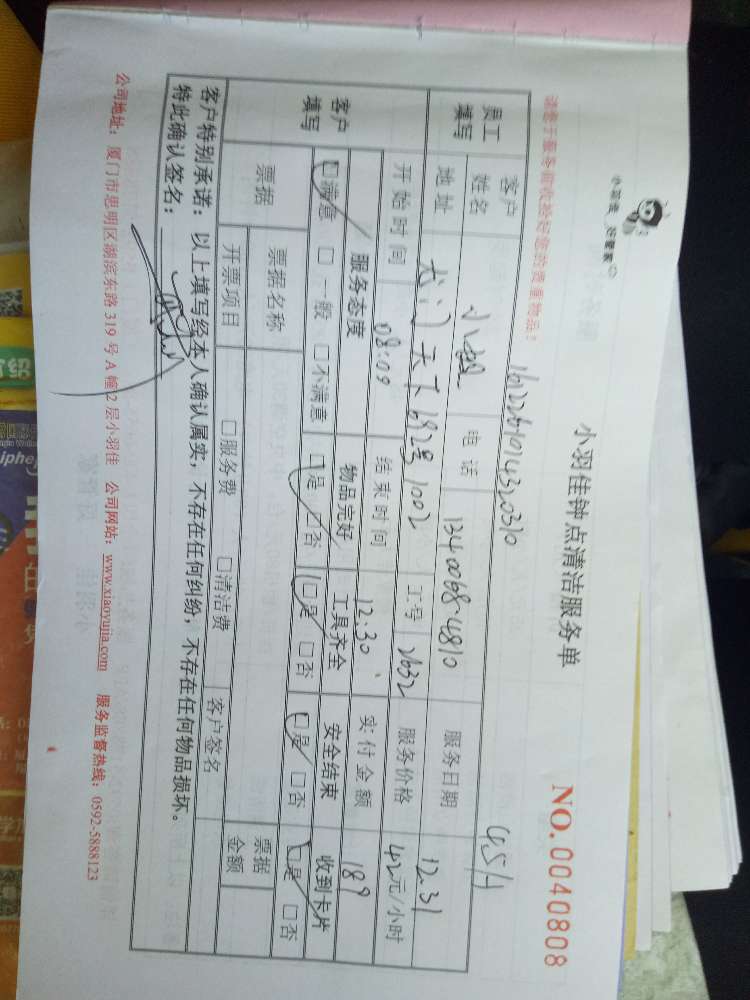 小羽佳 好管家
小羽佳钟点清洁服务单
NO. 0040808
请您于服务前收拾好您的贵重物品!
161226101432030 45/1
员工填写 客户姓名 小姐 电话 13400684810 服务日期 12.31
地址 天下 682号 1002 工号 2632 服务价格 42元/小时
客户填写 开始时间 08:09 结束时间 12:30 实付金额 189
服务态度 物品完好 工具齐全 安全结束 收到卡片
☑满意 □一般 □不满意 ☑是 □否 ☑是 □否 ☑是 □否 ☑是 □否
票据 票据名称 客户签名 票据金额
开票项目 □服务费 □清洁费
客户特别承诺:以上填写经本人确认属实,不存在任何纠纷,不存在任何物品损坏。
特此确认签名:
公司地址:厦门市思明区湖滨东路 319 号 A 幢 2 层小羽佳 公司网站:www.xiaoyujia.com 服务监督热线:0592-5888123